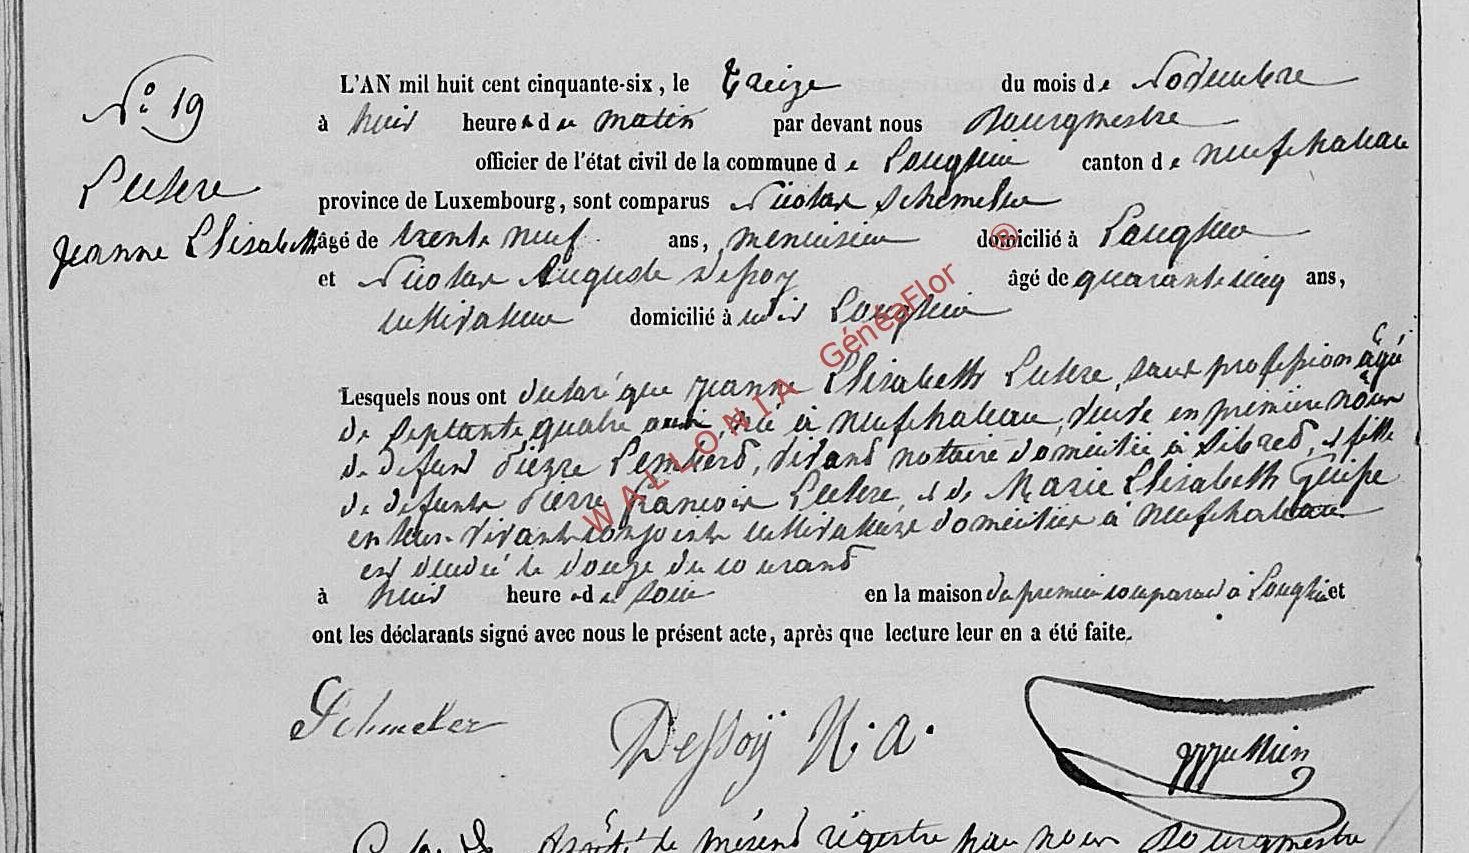 N° 19
Leclere
Jeanne Elisabeth
L'AN mil huit cent cinquante-six, le treize du mois de Novembre
à huit heures du matin par devant nous Bourgmestre
officier de l'état civil de la commune de Longlier canton de neufchateau
province de Luxembourg, sont comparus Nicolas
âgé de trente neuf ans, menuisier domicilié à Longlier
et Nicolas Auguste Dessoy âgé de quarante cinq ans,
cultivateur domicilié à Longlier
Lesquels nous ont declaré que jeanne Elisabeth Leclere, sans profession agée
de septante quatre ans, née à neufchateau, veuve en première nôces
de defunt Pierre vivant notaire domicilié à Sibret, et fille
de defunts Pierre françois Leclere, et de Marie Elisabeth
en leur vivant conjoints cultivateurs domiciliés à neufchateau
est décédé le douze du courant
à huit heures du soir en la maison du premier comparant à Longlier et
ont les déclarants signé avec nous le présent acte, après que lecture leur en a été faite.
Dessoÿ N. A.
le présent régistre par nous Bourgmestre
WALLONIA GénéaFlor ®